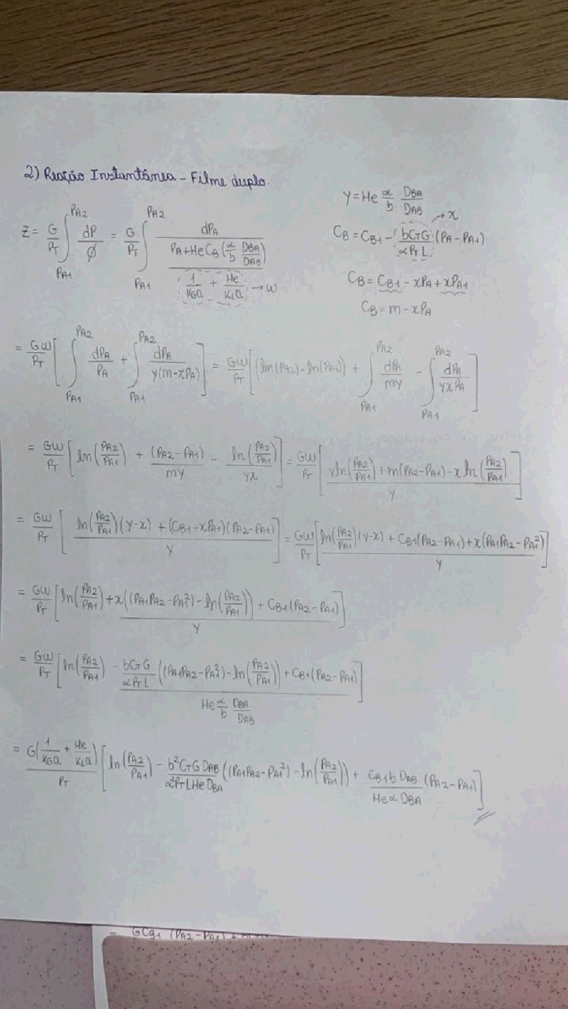 2) Reação Instantânea - Filme duplo.
Z = G/P_T ∫_{PA1}^{PA2} dP/φ = G/P_T ∫_{PA1}^{PA2} dPA / [(PA + He CB (α/b DBA/DAB)) / (1/KGa + He/KLa)] → w
y = He α/b DBA/DAB
→ x
CB = CB1 - (bCTG/αPTL) (PA - PA1)
CB = CB1 - xPA + xPA1
CB = m - xPA
= GW/PT [∫_{PA1}^{PA2} dPA/PA + ∫_{PA1}^{PA2} dPA/y(m-xPA)] = GW/PT [(ln(PA2) - ln(PA1)) + ∫_{PA1}^{PA2} dPA/my - ∫_{PA1}^{PA2} dPA/yxPA]
= GW/PT [ln(PA2/PA1) + (PA2-PA1)/my - ln(PA2/PA1)/yx] = GW/PT [(y ln(PA2/PA1) + m(PA2-PA1) - x ln(PA2/PA1))/y]
= GW/PT [(ln(PA2/PA1)(y-x) + (CB1+xPA1)(PA2-PA1))/y] = GW/PT [(ln(PA2/PA1)(y-x) + CB1(PA2-PA1) + x(PA1PA2-PA1²))/y]
= GW/PT [ln(PA2/PA1) + (x((PA1PA2-PA1²) - ln(PA2/PA1)) + CB1(PA2-PA1))/y]
= GW/PT [ln(PA2/PA1) - (bCTG/αPTL ((PA1PA2-PA1²) - ln(PA2/PA1)) + CB1(PA2-PA1))/(He α/b DBA/DAB)]
= G(1/KGa + He/KLa)/PT [ln(PA2/PA1) - b²CTG DAB/α²PTLHeDBA ((PA1PA2-PA1²) - ln(PA2/PA1)) + CB1 b DAB/HeαDBA (PA2-PA1)]